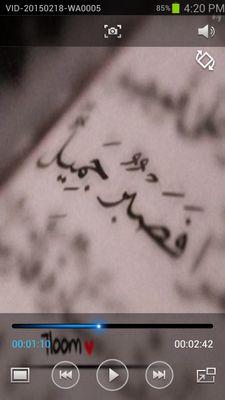 VID-20150218-WA0005 85% 4:20 PM
فَصَبْرٌ جَمِيلٌ
00:01:10 00:02:42